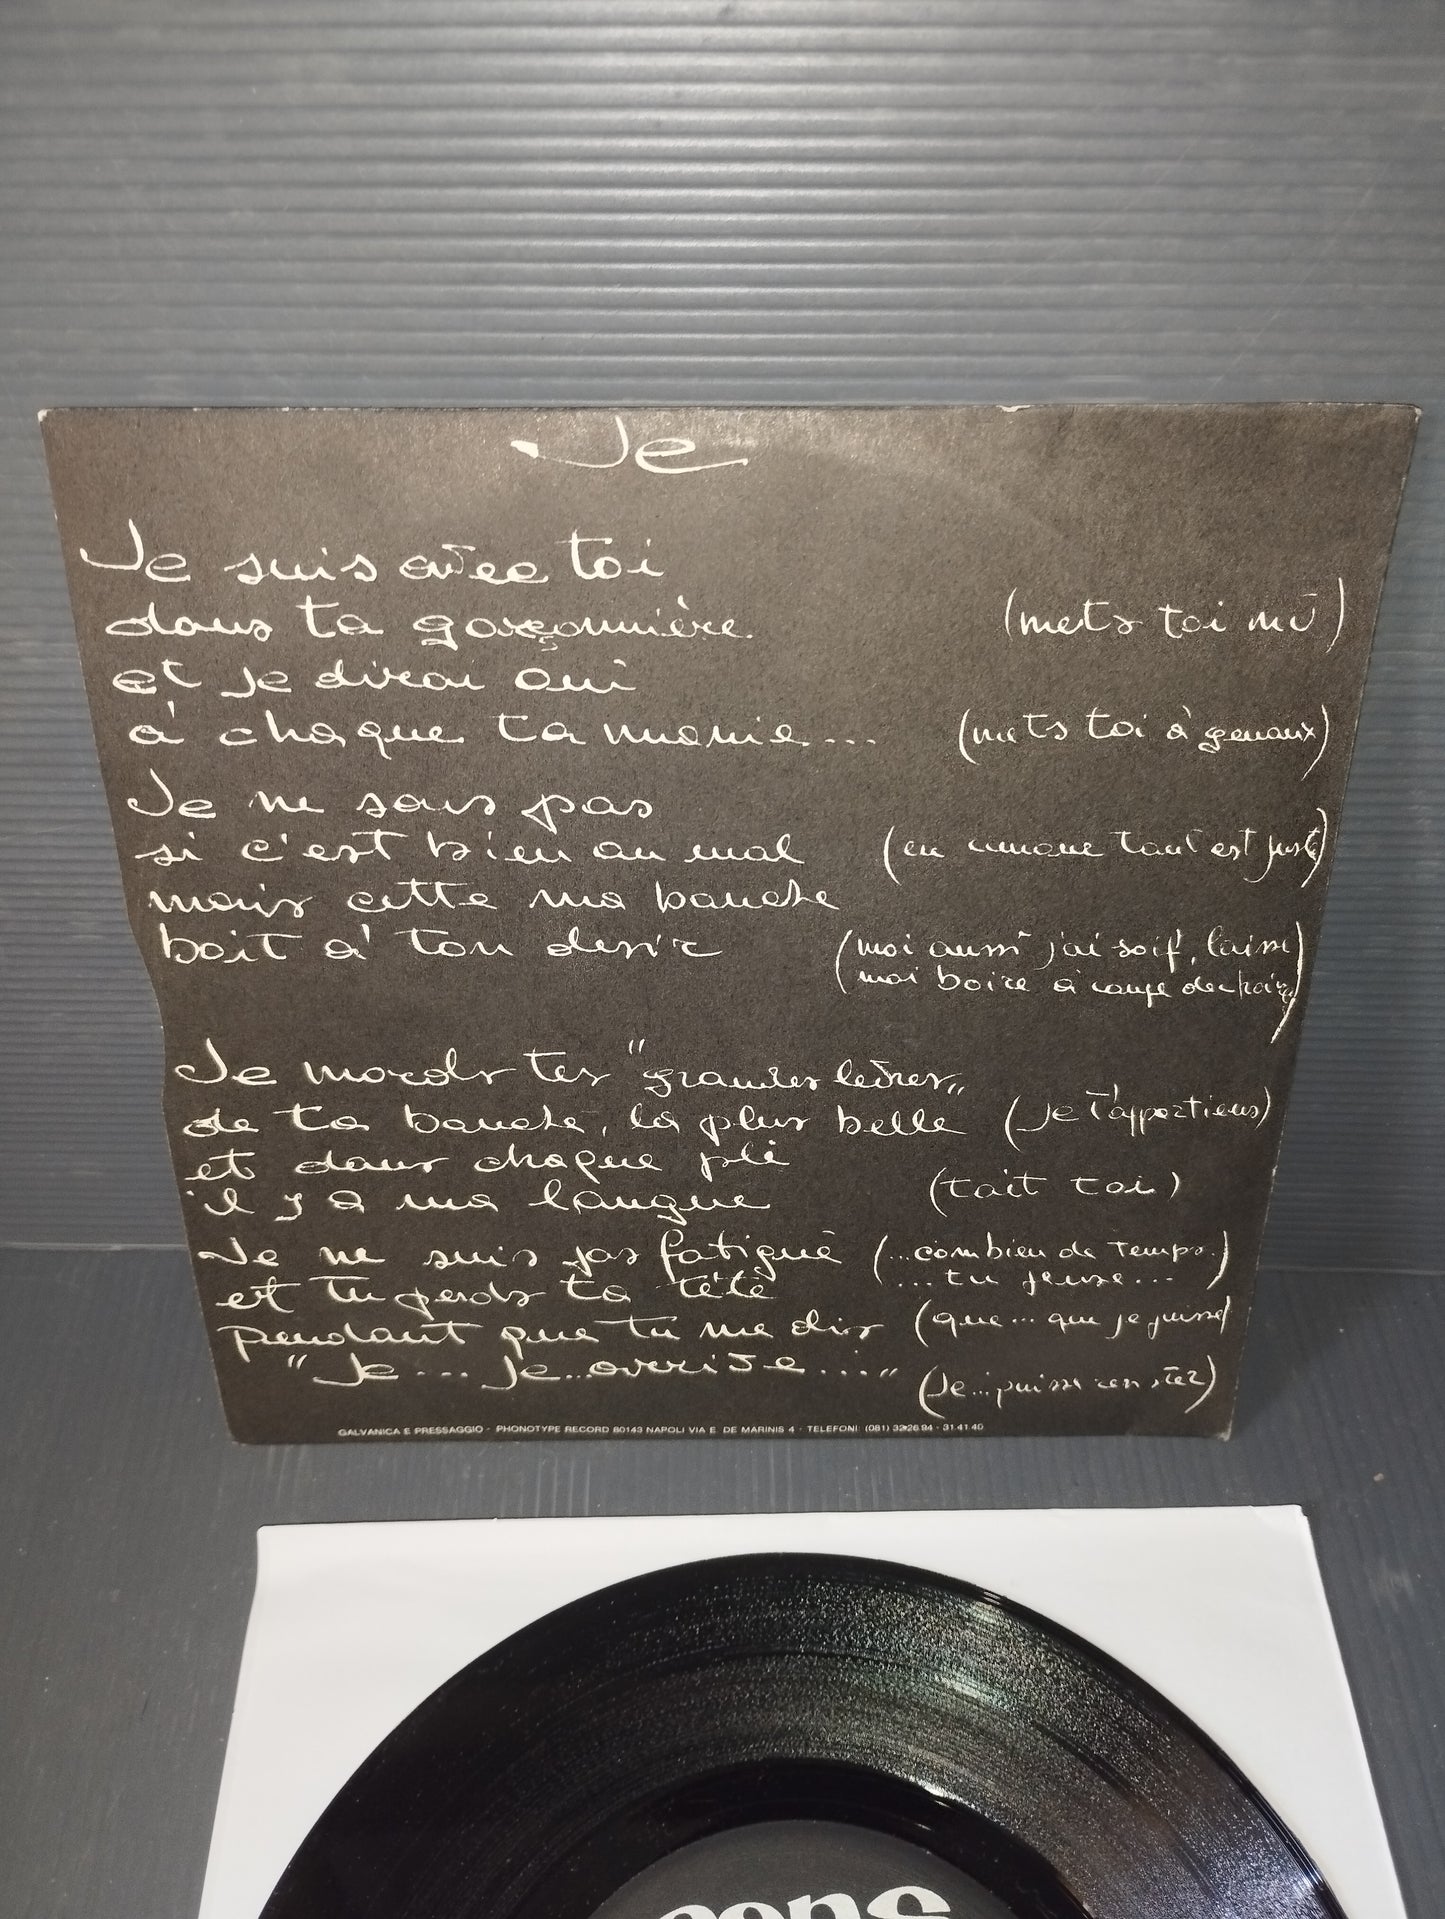 Je
Je suis avec toi
dans ta garçonnière (mets toi nú)
et je dirai oui
à chaque ta manie... (mets toi à genaux)
Je ne sais pas
si c'est bien ou mal (en amour tout est juste)
mais cette ma bouche
boit a' ton desir (moi aussi j'ai soif, laisse
moi boire à
Je mords tes "grandes levres"
de ta bouche, la plus belle (Je t'appartiens)
et dans chaque pli
il y a ma langue (tait toi)
Je ne suis pas fatigué (...combien de temps.)
et tu perds ta tété ...tu pense...
pendant que tu me dis (que... que je puisse
"Je... Je... arrive..." (Je...puisse
GALVANICA E PRESSAGGIO - PHONOTYPE RECORD 80143 NAPOLI VIA E. DE MARINIS 4 - TELEFONI (081) 32.26.94 - 31.41.40